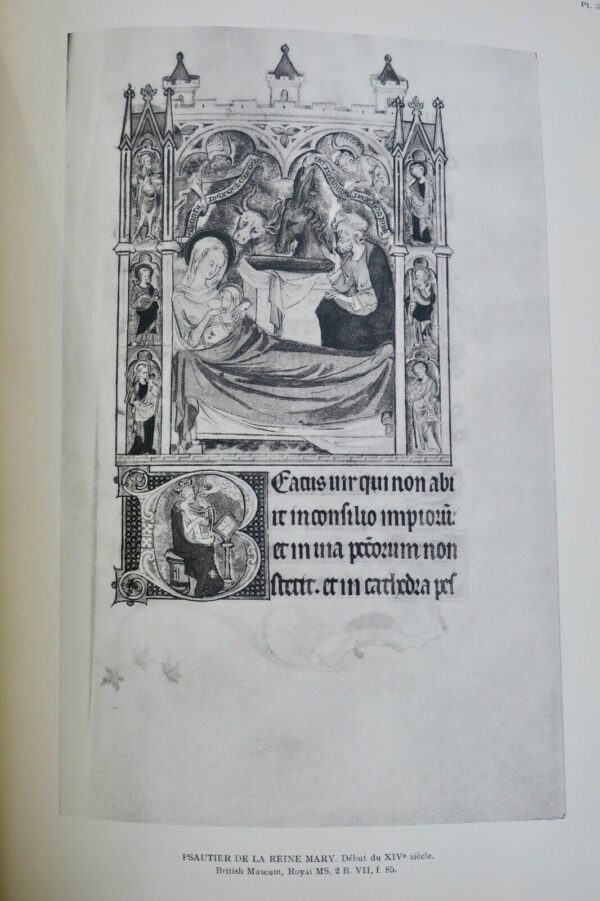 Pl. 3
Beatus uir qui non abi
it in consilio impiorū:
et in uia pctōrum non
stetit. et in cathedra pes
PSAUTIER DE LA REINE MARY. Début du XIVe siècle.
British Museum, Royal MS. 2 B. VII, f. 85.